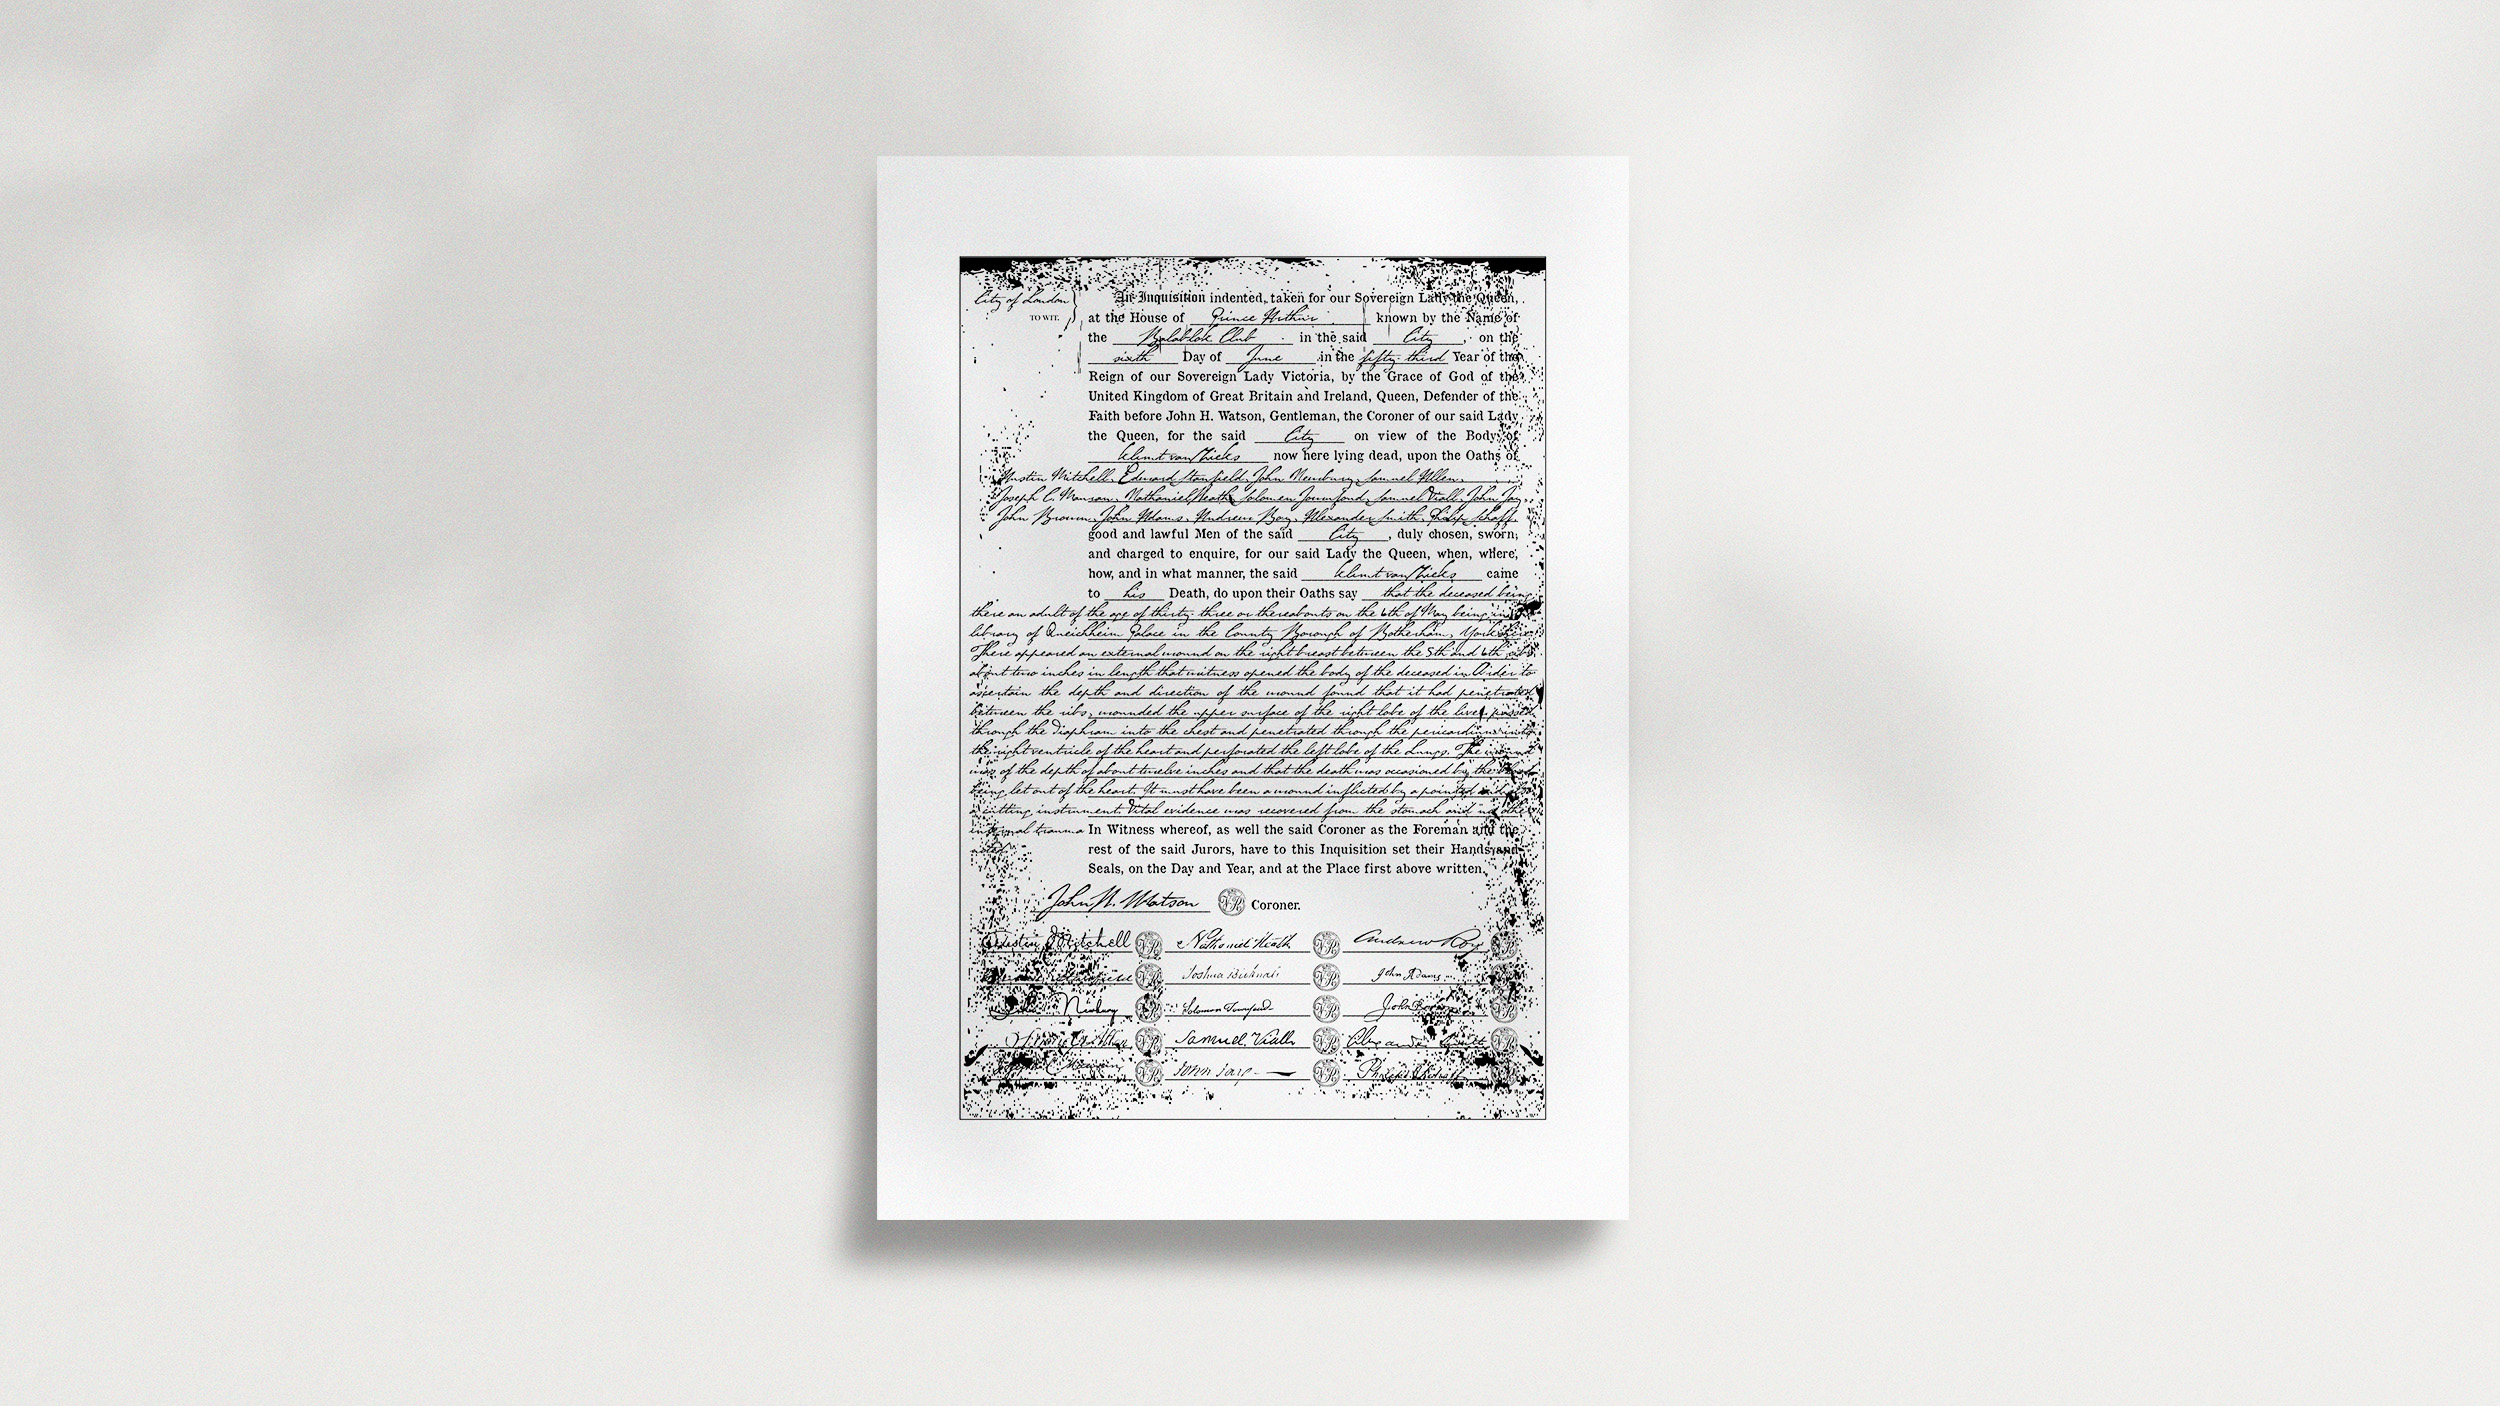 City of London
TO WIT.
An Inquisition indented, taken for our Sovereign Lady the Queen,
at the House of Prince Arthur known by the Name of
the Club in the said City, on the
sixth Day of June in the fifty-third Year of the
Reign of our Sovereign Lady Victoria, by the Grace of God of the
United Kingdom of Great Britain and Ireland, Queen, Defender of the
Faith before John H. Watson, Gentleman, the Coroner of our said Lady
the Queen, for the said City on view of the Body of
now here lying dead, upon the Oaths of
Austin Mitchell, Edward Stanfield, John Newbury, Samuel Allen,
Joseph C. Nathaniel Heath, Solomon Townsend, Samuel Viall, John Jay,
John Brown, John Adams, Andrew Alexander Smith, Philip Schaff,
good and lawful Men of the said City, duly chosen, sworn,
and charged to enquire, for our said Lady the Queen, when, where,
how, and in what manner, the said came
to his Death, do upon their Oaths say that the deceased being
there an adult of the age of thirty-three or thereabouts on the 6th of May being in
library of Palace in the County Borough of Yorkshire
There appeared an external wound on the right breast between the 5th and 6th ribs
about two inches in length that witness opened the body of the deceased in Order to
ascertain the depth and direction of the wound found that it had penetrated
between the ribs, wounded the upper surface of the right lobe of the liver passed
through the diaphram into the chest and penetrated through the pericardium into
the right ventricle of the heart and perforated the left lobe of the Lungs. The wound
was of the depth of about twelve inches and that the death was occasioned by the blood
being let out of the heart. It must have been a wound inflicted by a pointed and
a cutting instrument. Vital evidence was recovered from the stomach and no other
internal trauma In Witness whereof, as well the said Coroner as the Foreman and the
noted rest of the said Jurors, have to this Inquisition set their Hands and
Seals, on the Day and Year, and at the Place first above written.
John H. Watson VR Coroner.
Austin Mitchell VR Nathaniel Heath VR Andrew Roy VR
VR Joshua VR John Adams VR
VR Solomon Townsend VR John Brown VR
VR Samuel Viall VR Alexander Smith VR
VR John Jay VR VR